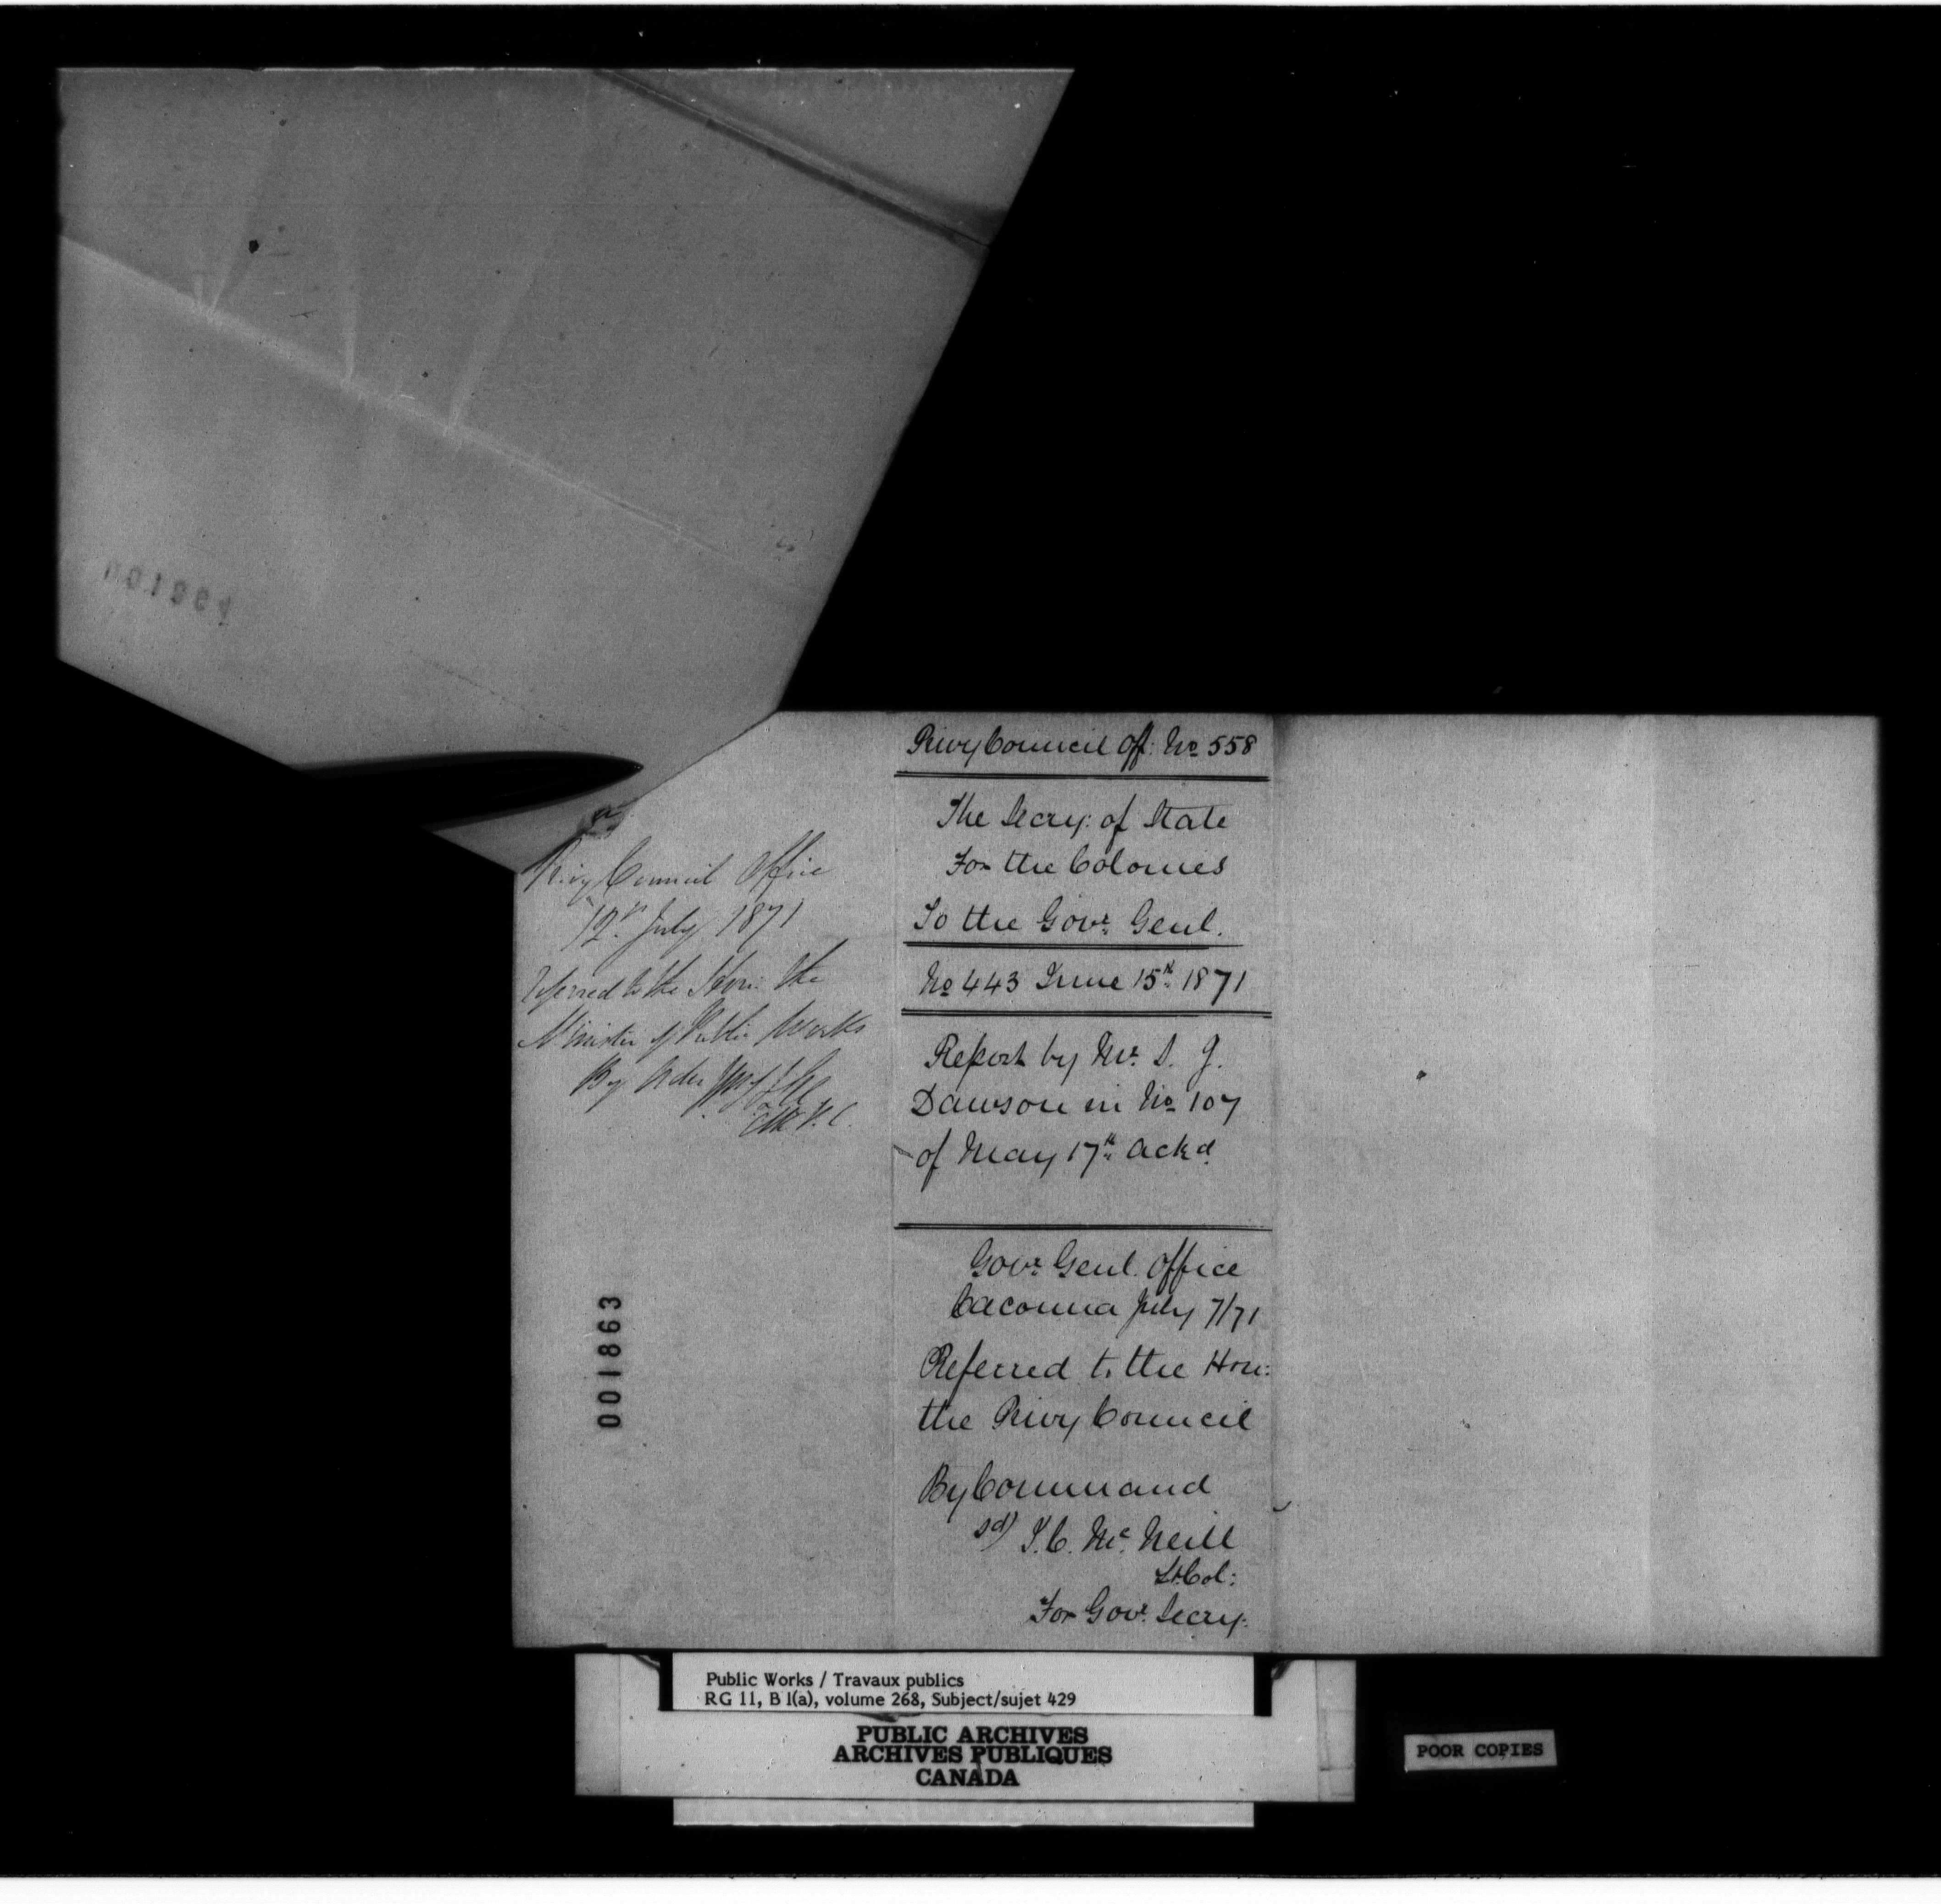 001864
Privy Council Office
12th July 1871
Referred to the Hon: the
Minister of Public Works
By Order
C.P.C.
001863
Privy Council Off: No 558
The Secry: of State
For the Colonies
To the Govr. Genl.
No 443 June 15th 1871
Report by Mr. S. J.
Dawson in No 107
of May 17th ackd
Govr. Genl. Office
Cacouna July 7/71
Referred to the Hon:
the Privy Council
By Command
sd) J. C. Mc. Neill
Lt. Col:
For Govr. Secry.
Public Works / Travaux publics
RG 11, B 1(a), volume 268, Subject/sujet 429
PUBLIC ARCHIVES
ARCHIVES PUBLIQUES
CANADA
POOR COPIES